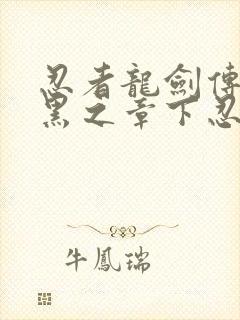 忍者龍劍傳
黑之章下忍
牛鳳瑞